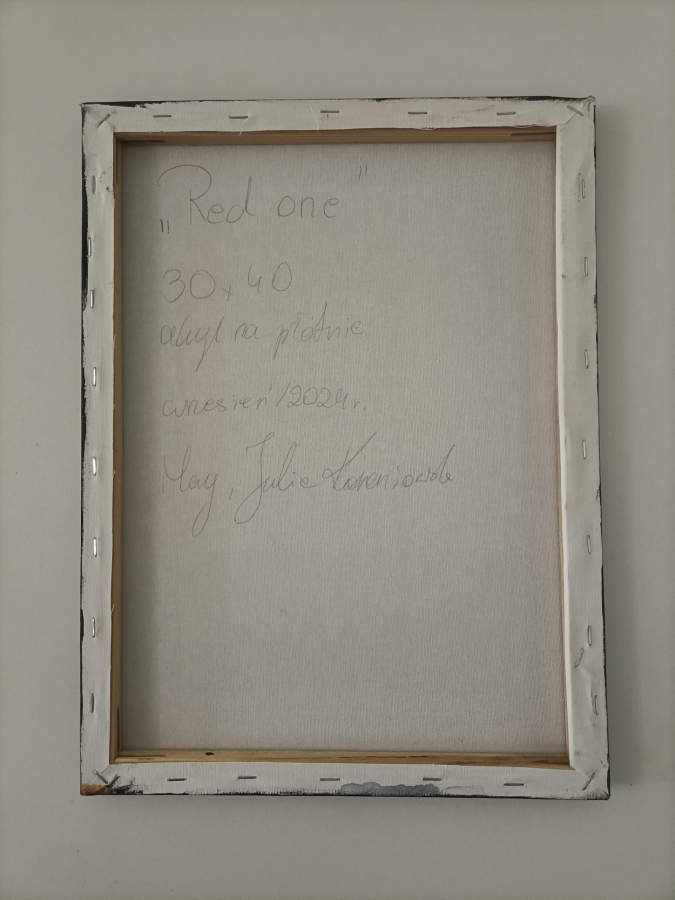 „Red one"
30x40
akryl na płótnie
wrzesień/2024r.
May, Julia Koreniowska